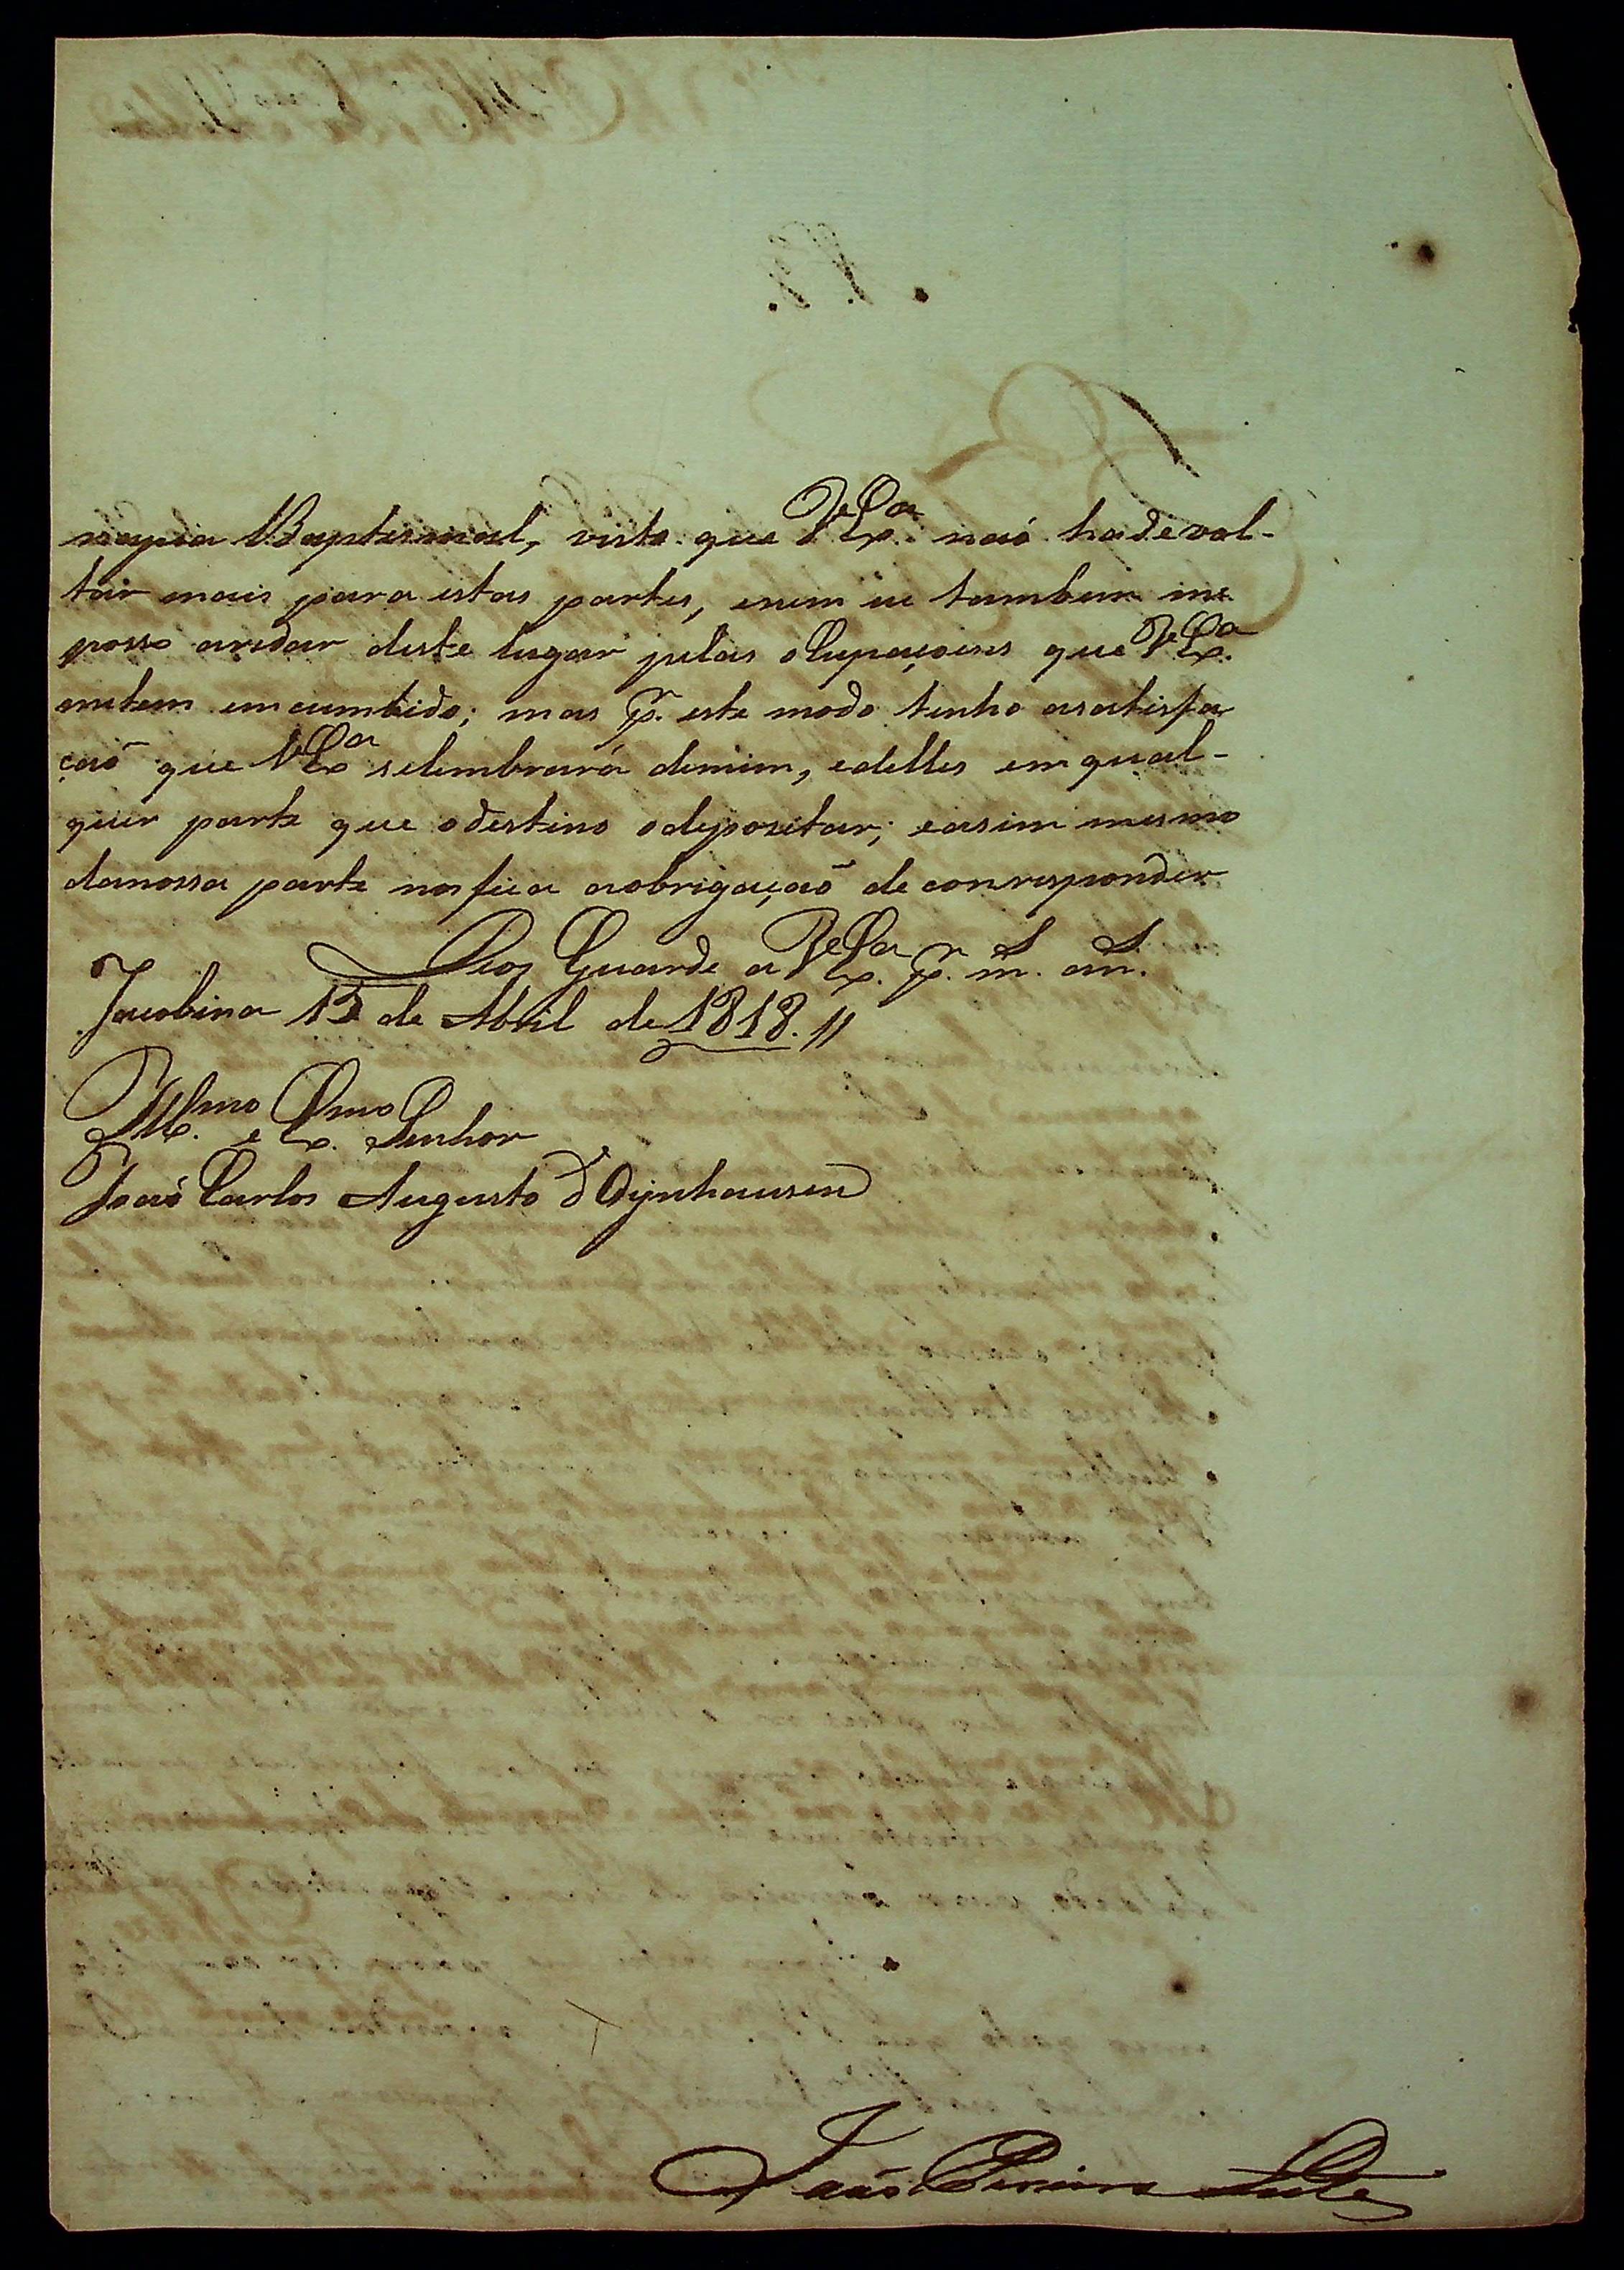 Baptismal, visto que V Ex.ª naõ hade vol-
tar mais para estas partes, enem eu tambem me
posso aredar deste lugar pelas oCupaçoens que V Ex.ª
metem emcumbido; mas p.r este modo tenho asatisfa
çaõ que V Ex.ª selembrará demim, edelles em qual-
quer parte que odestino odepozitar; easim mesmo
danossa parte nos fica aobrigaçaõ de conresponder
Deos Guarde a V Ex.ª p.r m.s an.s
Jacobina 13 de Abril de 1818. //
Ill.mo e Ex.mo Senhor
Joaõ Carlos Augusto d'Oÿnhausen
Joaõ Pereira Leite